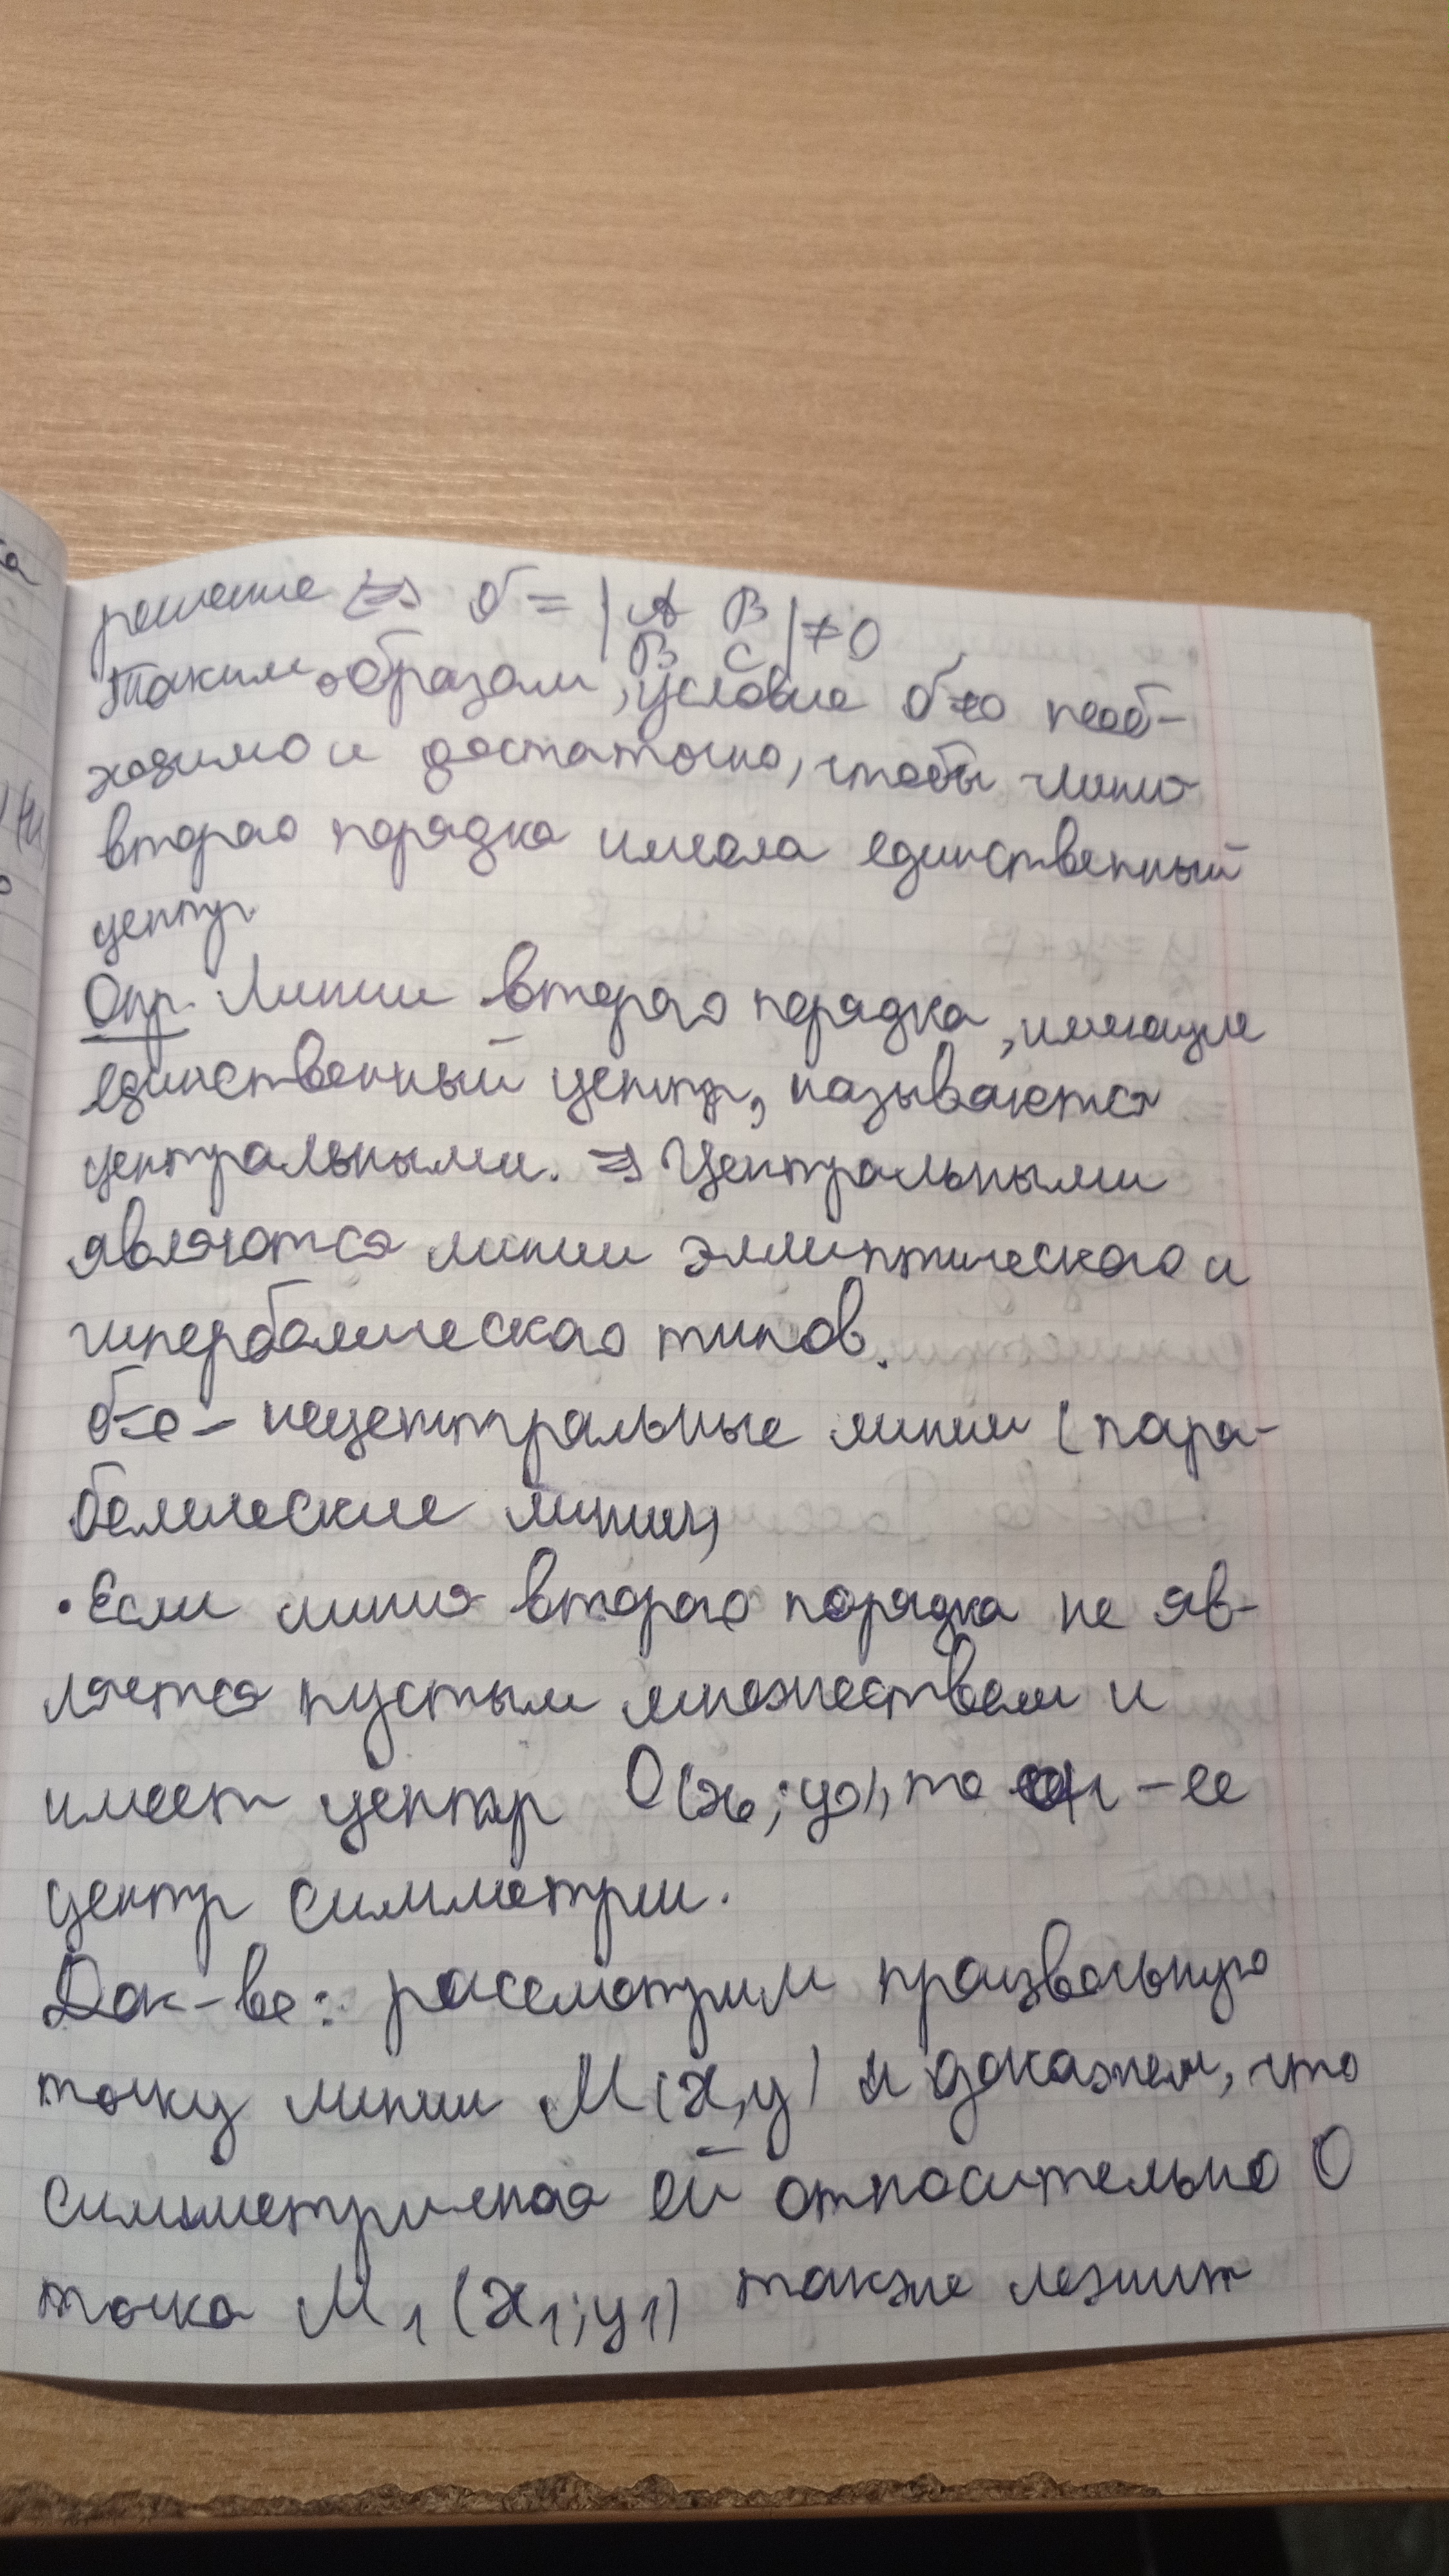 решение ⇔ δ = | A B |
B C | ≠ 0
Таким образом, условие δ≠0 необ-
ходимо и достаточно, чтобы линия
второго порядка имела единственный
центр.
Опр. Линии второго порядка, имеющие
единственный центр, называются
центральными. ⇒ Центральными
являются линии эллиптического и
гиперболического типов.
δ=0 – нецентральные линии (пара-
болические линии)
• Если линия второго порядка не яв-
ляется пустым множеством и
имеет центр O(x₀; y₀), то – ее
центр симметрии.
Док-во: рассмотрим произвольную
точку линии M(x,y) и докажем, что
симметричная ей относительно O
точка M₁(x₁; y₁) также лежит